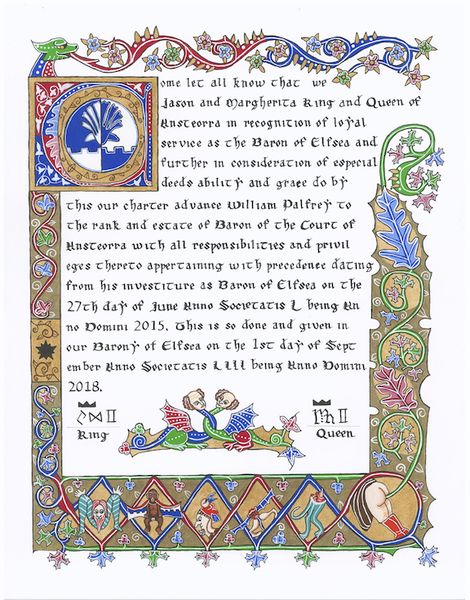 Come let all know that we
Jason and Margherita King and Queen of
Ansteorra in recognition of loyal
service as the Baron of Elfsea and
further in consideration of especial
deeds ability and grace do by
this our charter advance William Palfrey to
the rank and estate of Baron of the Court of
Ansteorra with all responsibilities and privil
eges thereto appertaining with precedence dating
from his investiture as Baron of Elfsea on the
27th day of June Anno Societatis L being An
no Domini 2015. This is so done and given in
our Barony of Elfsea on the 1st day of Sept
ember Anno Societatis LIII being Anno Domini
2018.
King
Queen